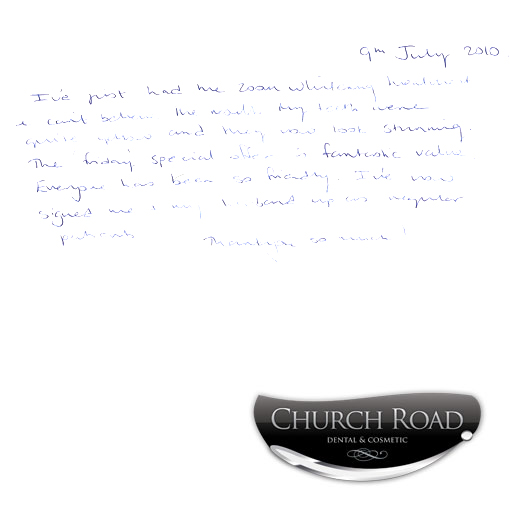 9th July 2010.
I've just had the zoom whitening treatment
& can't believe the results. My teeth were
quite yellow and they now look stunning.
The friday special offer is fantastic value.
Everyone has been so friendly. I've now
signed me & my husband up as regular
patients. Thankyou so much!
CHURCH ROAD
DENTAL & COSMETIC